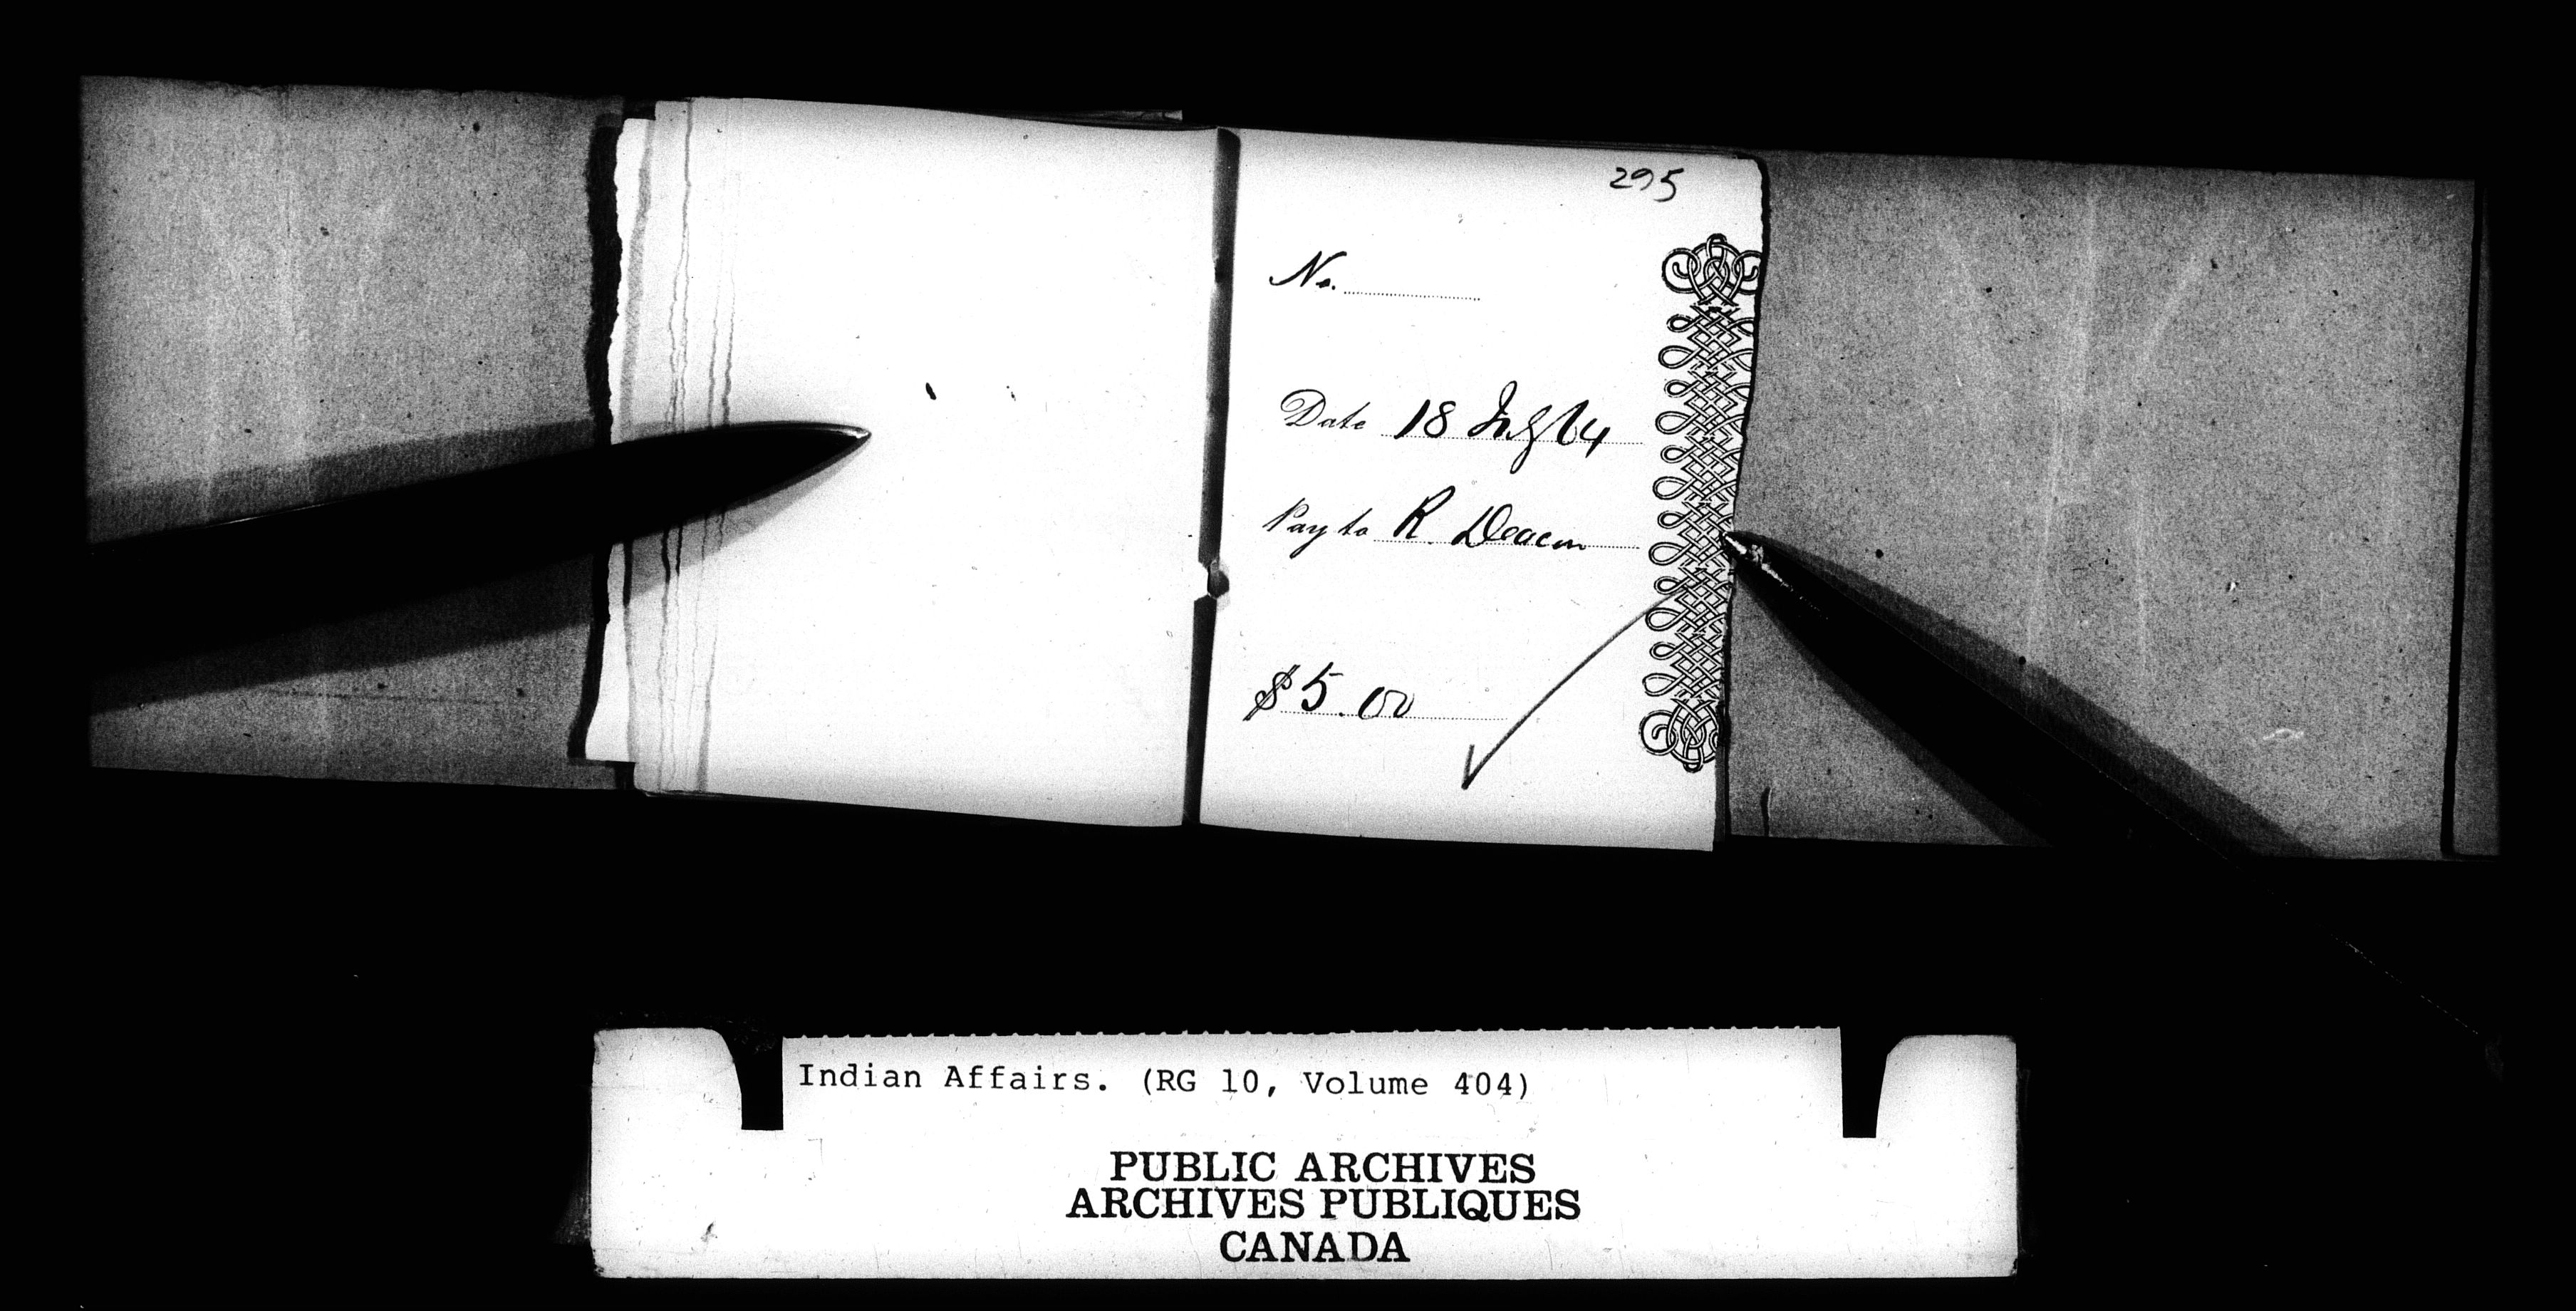 295
No.
Date 18 July 64
Pay to R. Deacon
$ 5.00
Indian Affairs. (RG 10, Volume 404)
PUBLIC ARCHIVES
ARCHIVES PUBLIQUES
CANADA